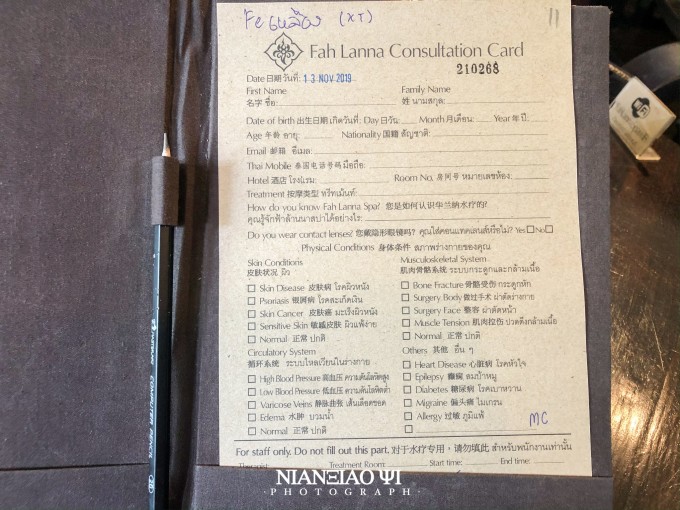 (XT)
11
Fah Lanna Consultation Card
210268
Date 日期 วันที่: 13 NOV 2019
First Name Family Name
名字 ชื่อ: 姓 นามสกุล:
Date of birth 出生日期 เกิดวันที่: Day 日วัน: Month 月เดือน: Year 年 ปี
Age 年龄 อายุ: Nationality 国籍 สัญชาติ:
Email 邮箱 อีเมล:
Thai Mobile 泰国电话号码 มือถือ:
Hotel 酒店 โรงแรม: Room No. 房间号 หมายเลขห้อง:
Treatment 按摩类型 ทรีทเม้นท์:
How do you know Fah Lanna Spa? 您是如何认识华兰纳水疗的?
คุณรู้จักฟ้าล้านนาสปาได้อย่างไร:
Do you wear contact lenses? 您戴隐形眼镜吗? คุณใส่คอนแทคเลนส์หรือไม่? Yes No
Physical Conditions 身体条件 สภาพร่างกายของคุณ
Skin Conditions
皮肤状况 ผิว
Skin Disease 皮肤病 โรคผิวหนัง
Psoriasis 银屑病 โรคสะเก็ดเงิน
Skin Cancer 皮肤癌 มะเร็งผิวหนัง
Sensitive Skin 敏感皮肤 ผิวแพ้ง่าย
Normal 正常 ปกติ
Circulatory System
循环系统 ระบบไหลเวียนในร่างกาย
High Blood Pressure 高血压 ความดันโลหิตสูง
Low Blood Pressure 低血压 ความดันโลหิตต่ำ
Varicose Veins 静脉曲张 เส้นเลือดขอด
Edema 水肿 บวมน้ำ
Normal 正常 ปกติ
Musculoskeletal System
肌肉骨骼系统 ระบบกระดูกและกล้ามเนื้อ
Bone Fracture 骨骼受伤 กระดูกหัก
Surgery Body 做过手术 ผ่าตัดร่างกาย
Surgery Face 整容 ผ่าตัดหน้า
Muscle Tension 肌肉拉伤 ปวดตึงกล้ามเนื้อ
Normal 正常 ปกติ
Others 其他 อื่น ๆ
Heart Disease 心脏病 โรคหัวใจ
Epilepsy 癫痫 ลมบ้าหมู
Diabetes 糖尿病 โรคเบาหวาน
Migraine 偏头痛 ไมเกรน
Allergy 过敏 ภูมิแพ้
MC
For staff only. Do not fill out this part. 对于水疗专用,请勿填此 สำหรับพนักงานเท่านั้น
Therapist: Treatment Room: Start time: End time:
COMPUTER PENCIL
WiFi
NIANXIAO YI
PHOTOGRAPH